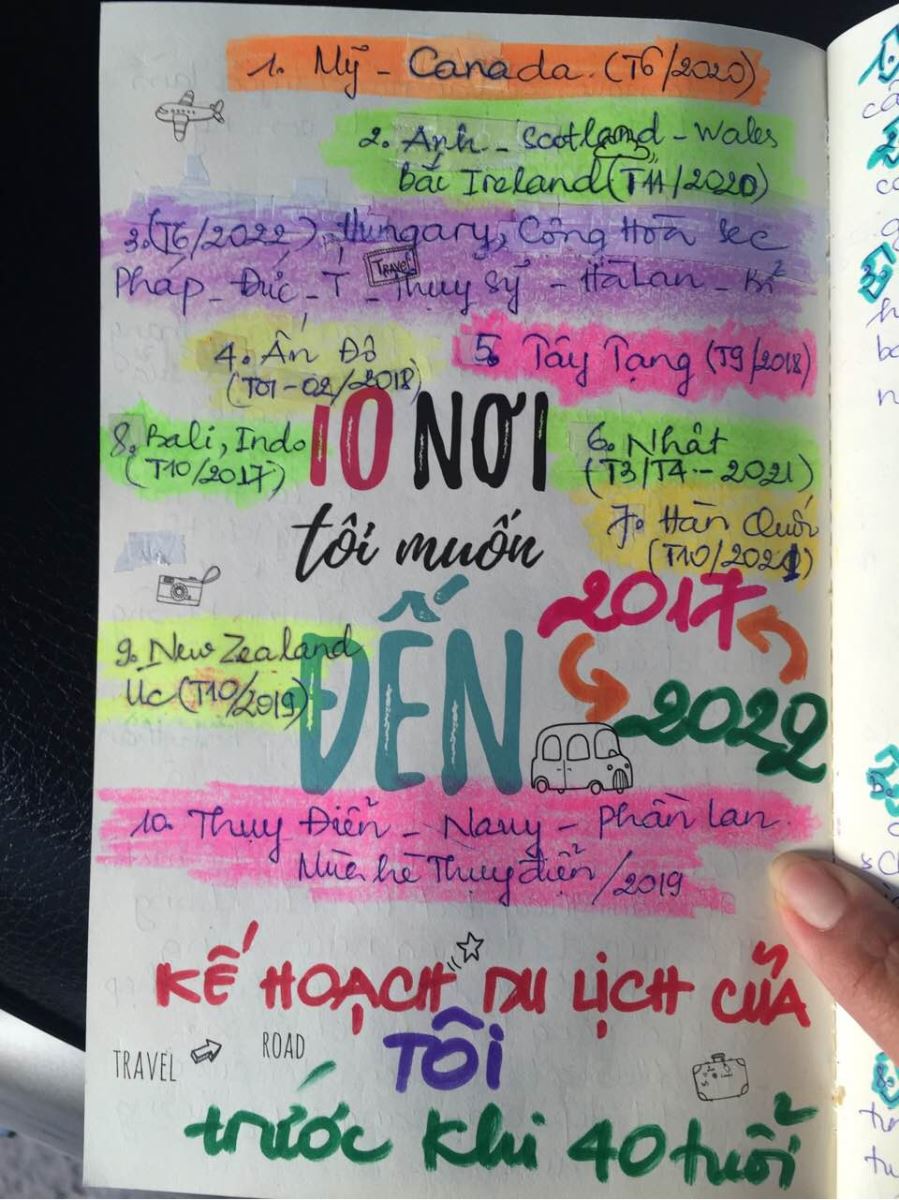 1. Mỹ - Canada. (T6/2020)
2. Anh - Scotland - Wales
bắc Ireland (T11/2020)
3. (T6/2022) Hungary, Cộng Hoà Sec
Pháp - Đức - Ý - Thụy Sỹ - Hà Lan - Bỉ
TRAVEL
4. Ấn Độ
(T01-02/2018)
5. Tây Tạng (T9/2018)
8. Bali, Indo
(T10/2017)
10 NƠI
6. Nhật
(T3/T4 - 2021)
tôi muốn
7. Hàn Quốc
(T10/2021)
ĐẾN
2017
2022
9. New Zealand
Úc (T10/2019)
10. Thụy Điển - Nauy - Phần Lan
Mùa hè Thụy điển /2019
KẾ HOẠCH DU LỊCH CỦA
TÔI
TRAVEL ROAD
trước khi 40 tuổi